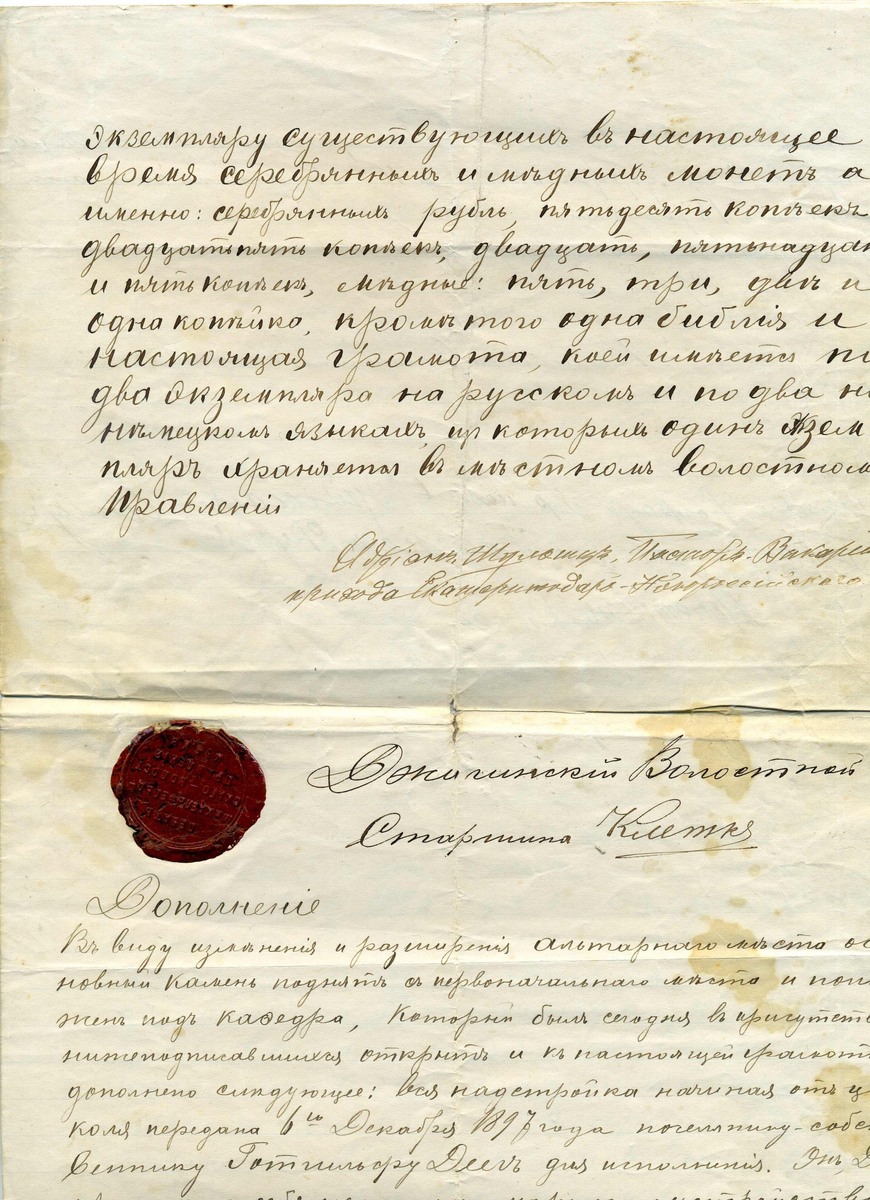 Экземпляру существующихъ въ настоящее
время серебрянныхъ и мѣдныхъ монетъ а
именно: серебрянныхъ рубль, пятьдесять копѣекъ
двадцатьпять копѣекъ, двадцать, пятьнадцат
и пять копѣекъ, мѣдные: пять, три, двѣ и
одна копѣйка, кромѣ того одна библія и
настоящая грамота, коей имѣется по
два экземпляра на русскомъ и по два на
нѣмецкомъ языкахъ, из которыхъ один экзем
пляръ хранится въ мѣстномъ волостном
Правленіи
Адріанъ Шульцъ, Пасторъ-Викарій
прихода Екатеринодаръ-Новороссійскаго
Джигинскій Волостной
Старшина Клетке
Дополненіе
Въ виду измѣненія и разширенія алтарнаго мѣста ос
новный камень поднятъ съ первоначальнаго мѣста и поло
женъ подъ кафедра, который былъ сегодня въ присутств
нижеподписавшихся открытъ и къ настоящей грамотѣ
дополнено слѣдующее: вся надстройка начиная отъ цо
коля передана 6го Декабря 1897 года поселянину-собст
веннику Готгильфу Деетъ для исполненія.